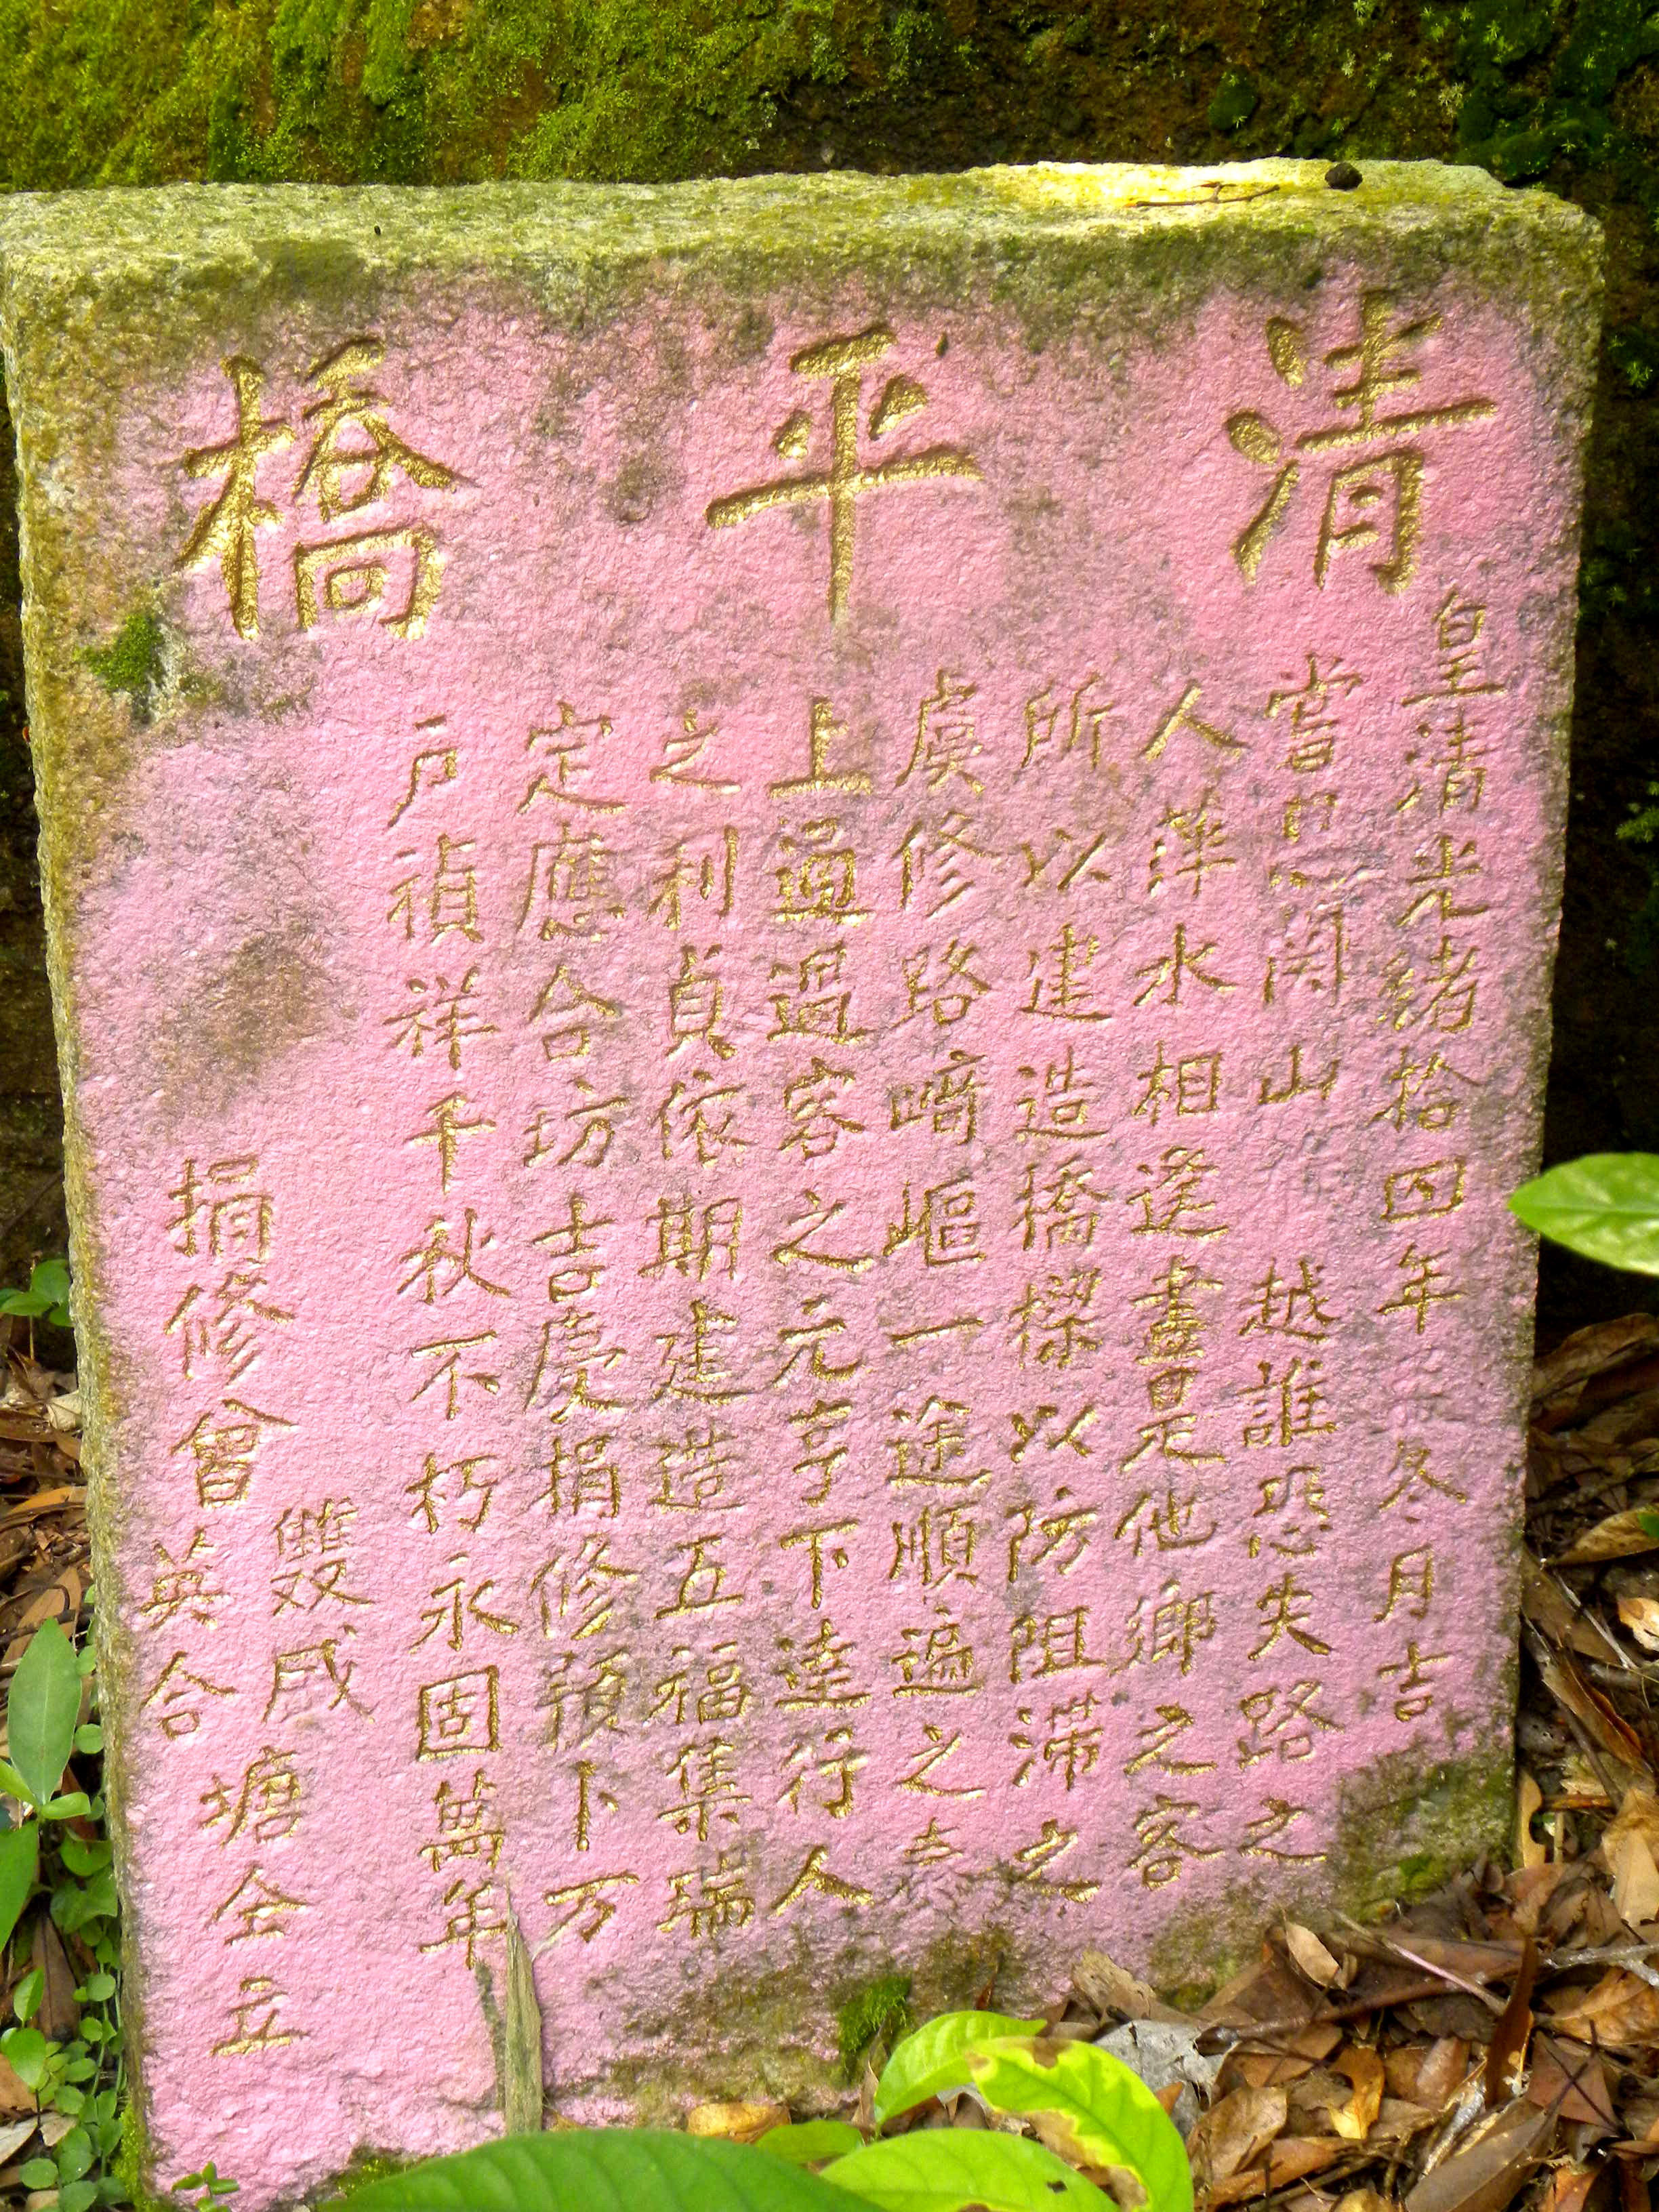 清平橋
皇清光緒拾四年冬月吉
當思関山 越誰恐失路之
人萍水相逢盡是他鄉之客
所以建造橋樑以防阻滞之
虞修路崎嶇一途順遍之
上通過客之元亨下達行人
之利貞依期建造五福集瑞
定應合坊吉慶捐修預卜万
戸禎祥千秋不朽永固萬年
捐修曾
雙成
英合
塘仝立